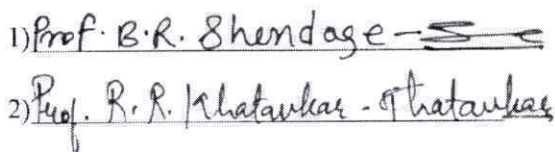 1) Prof. B.R. Shendage -
2) Prof. R.R. Khatavkar - Khatavkar